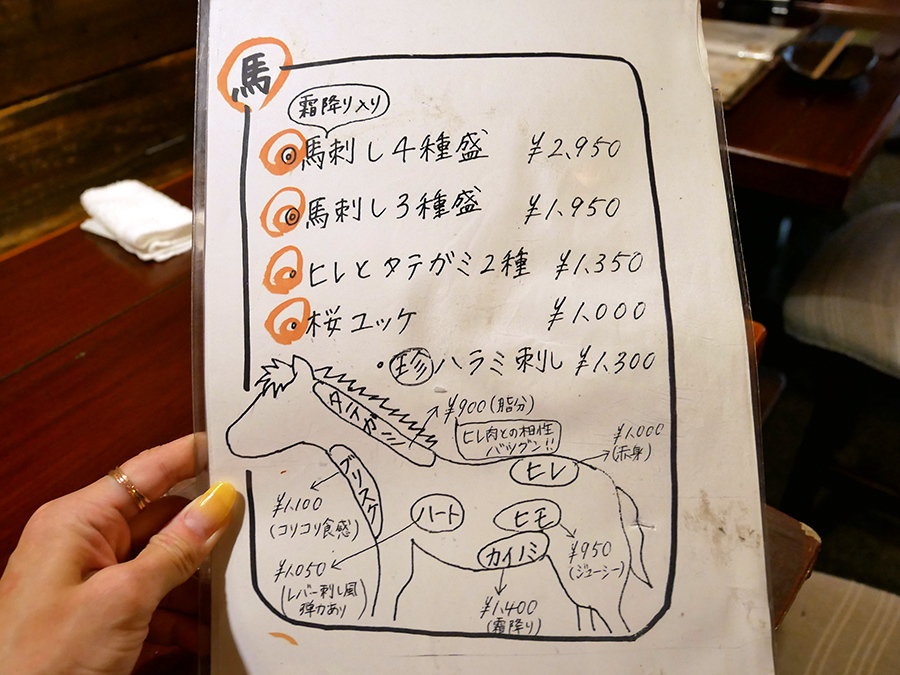 馬
霜降り入り
馬刺し4種盛 ¥2,950
馬刺し3種盛 ¥1,950
ヒレとタテガミ2種 ¥1,350
桜ユッケ ¥1,000
・珍ハラミ刺し ¥1,300
タテガミ
¥900(脂分)
ヒレ肉との相性
バツグン!!
ヒレ
¥1,000
(赤身)
ブリスケ
¥1,100
(コリコリ食感)
ハート
¥1,050
(レバー刺し風
弾力あり)
ヒモ
¥950
(ジューシー)
カイノミ
¥1,400
(霜降り)